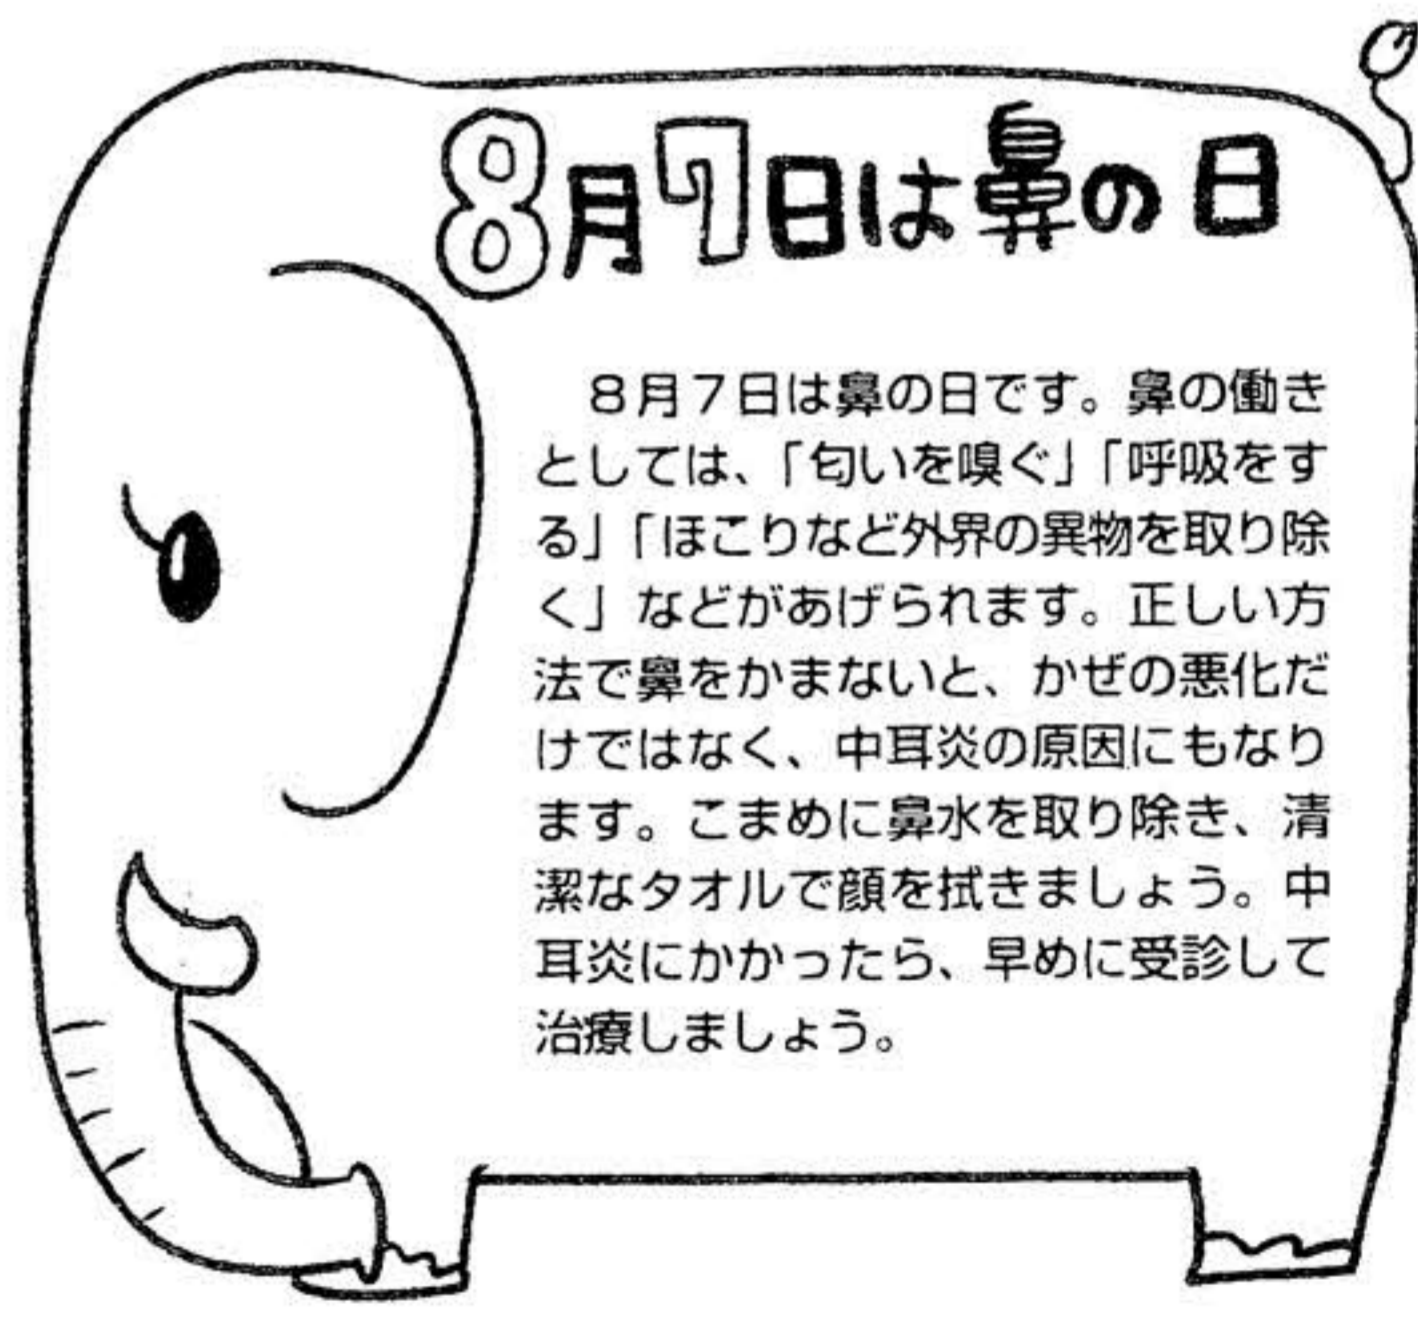 8月7日は鼻の日
8月7日は鼻の日です。鼻の働き
としては、「匂いを嗅ぐ」「呼吸をす
る」「ほこりなど外界の異物を取り除
く」などがあげられます。正しい方
法で鼻をかまないと、かぜの悪化だ
けではなく、中耳炎の原因にもなり
ます。こまめに鼻水を取り除き、清
潔なタオルで顔を拭きましょう。中
耳炎にかかったら、早めに受診して
治療しましょう。